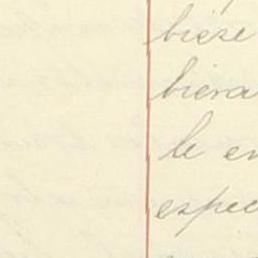 biese
biera
le en
espec